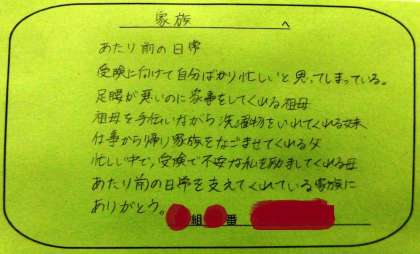 家族 へ
あたり前の日常
受験に向けて自分ばかり忙しいと思ってしまっている。
足腰が悪いのに家事をしてくれる祖母
祖母を手伝いながら洗濯物をいれてくれる妹
仕事から帰り家族をなごませてくれる父
忙しい中で、受験で不安な私を励ましてくれる母
あたり前の日常を支えてくれている家族に
ありがとう。
組 番